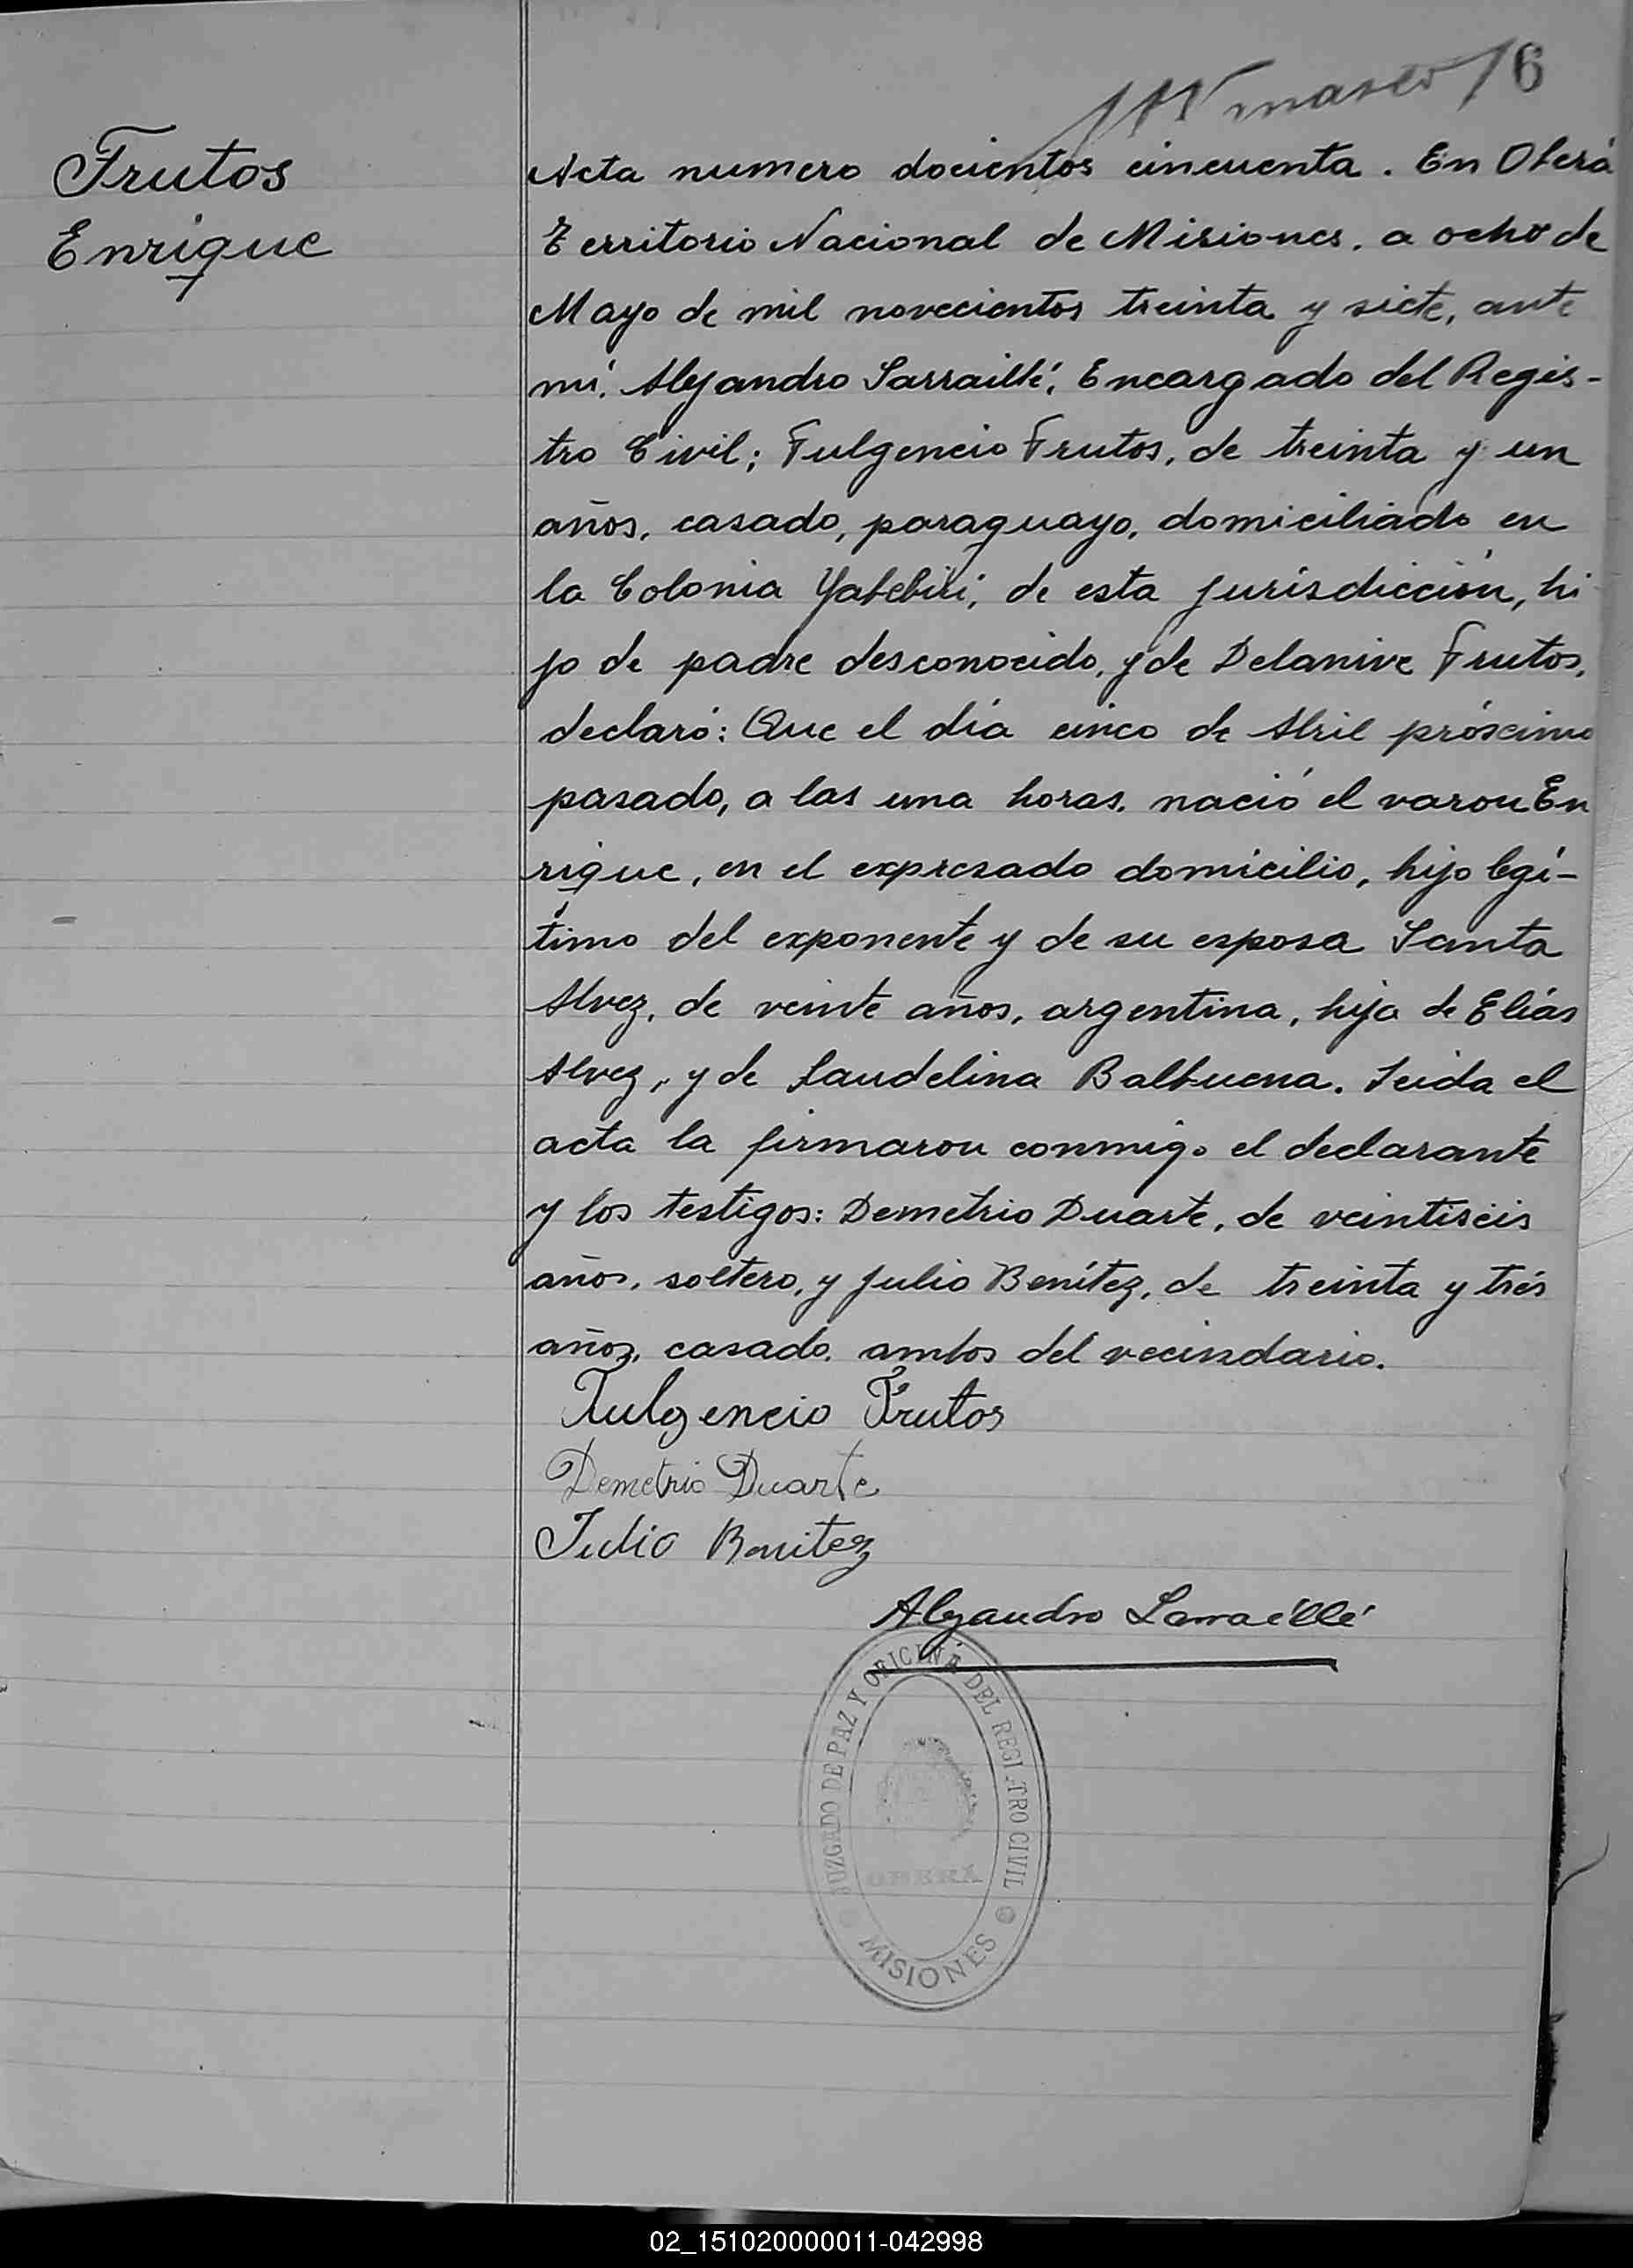 masc 6
Frutos
Enrique
Acta numero docientos cincuenta. En Oberá
Territorio Nacional de Misiones, a ocho de
Mayo de mil novecientos treinta y siete, ante
mí, Alejandro Sarraillé, Encargado del Regis-
tro Civil; Fulgencio Frutos, de treinta y un
años, casado, paraguayo, domiciliado en
la Colonia Yabebiri, de esta jurisdicción, hi-
jo de padre desconocido, y de Delanive Frutos,
declaró: Que el día cinco de Abril próximo
pasado, a las una horas, nació el varon En
rique, en el expresado domicilio, hijo legí-
timo del exponente y de su esposa Santa
Alvez, de veinte años, argentina, hija de Elías
Alvez, y de Laudelina Balbuena. Leida el
acta la firmaron conmigo el declarante
y los testigos: Demetrio Duarte, de veintiséis
años, soltero, y Julio Benítez, de treinta y trés
años, casado, ambos del vecindario.
Fulgencio Frutos
Demetrio Duarte
Julio Benitez
Alejandro Sarraillé
JUZGADO DE PAZ Y OFICINA DEL REGISTRO CIVIL
OBERÁ
MISIONES
02_151020000011-042998